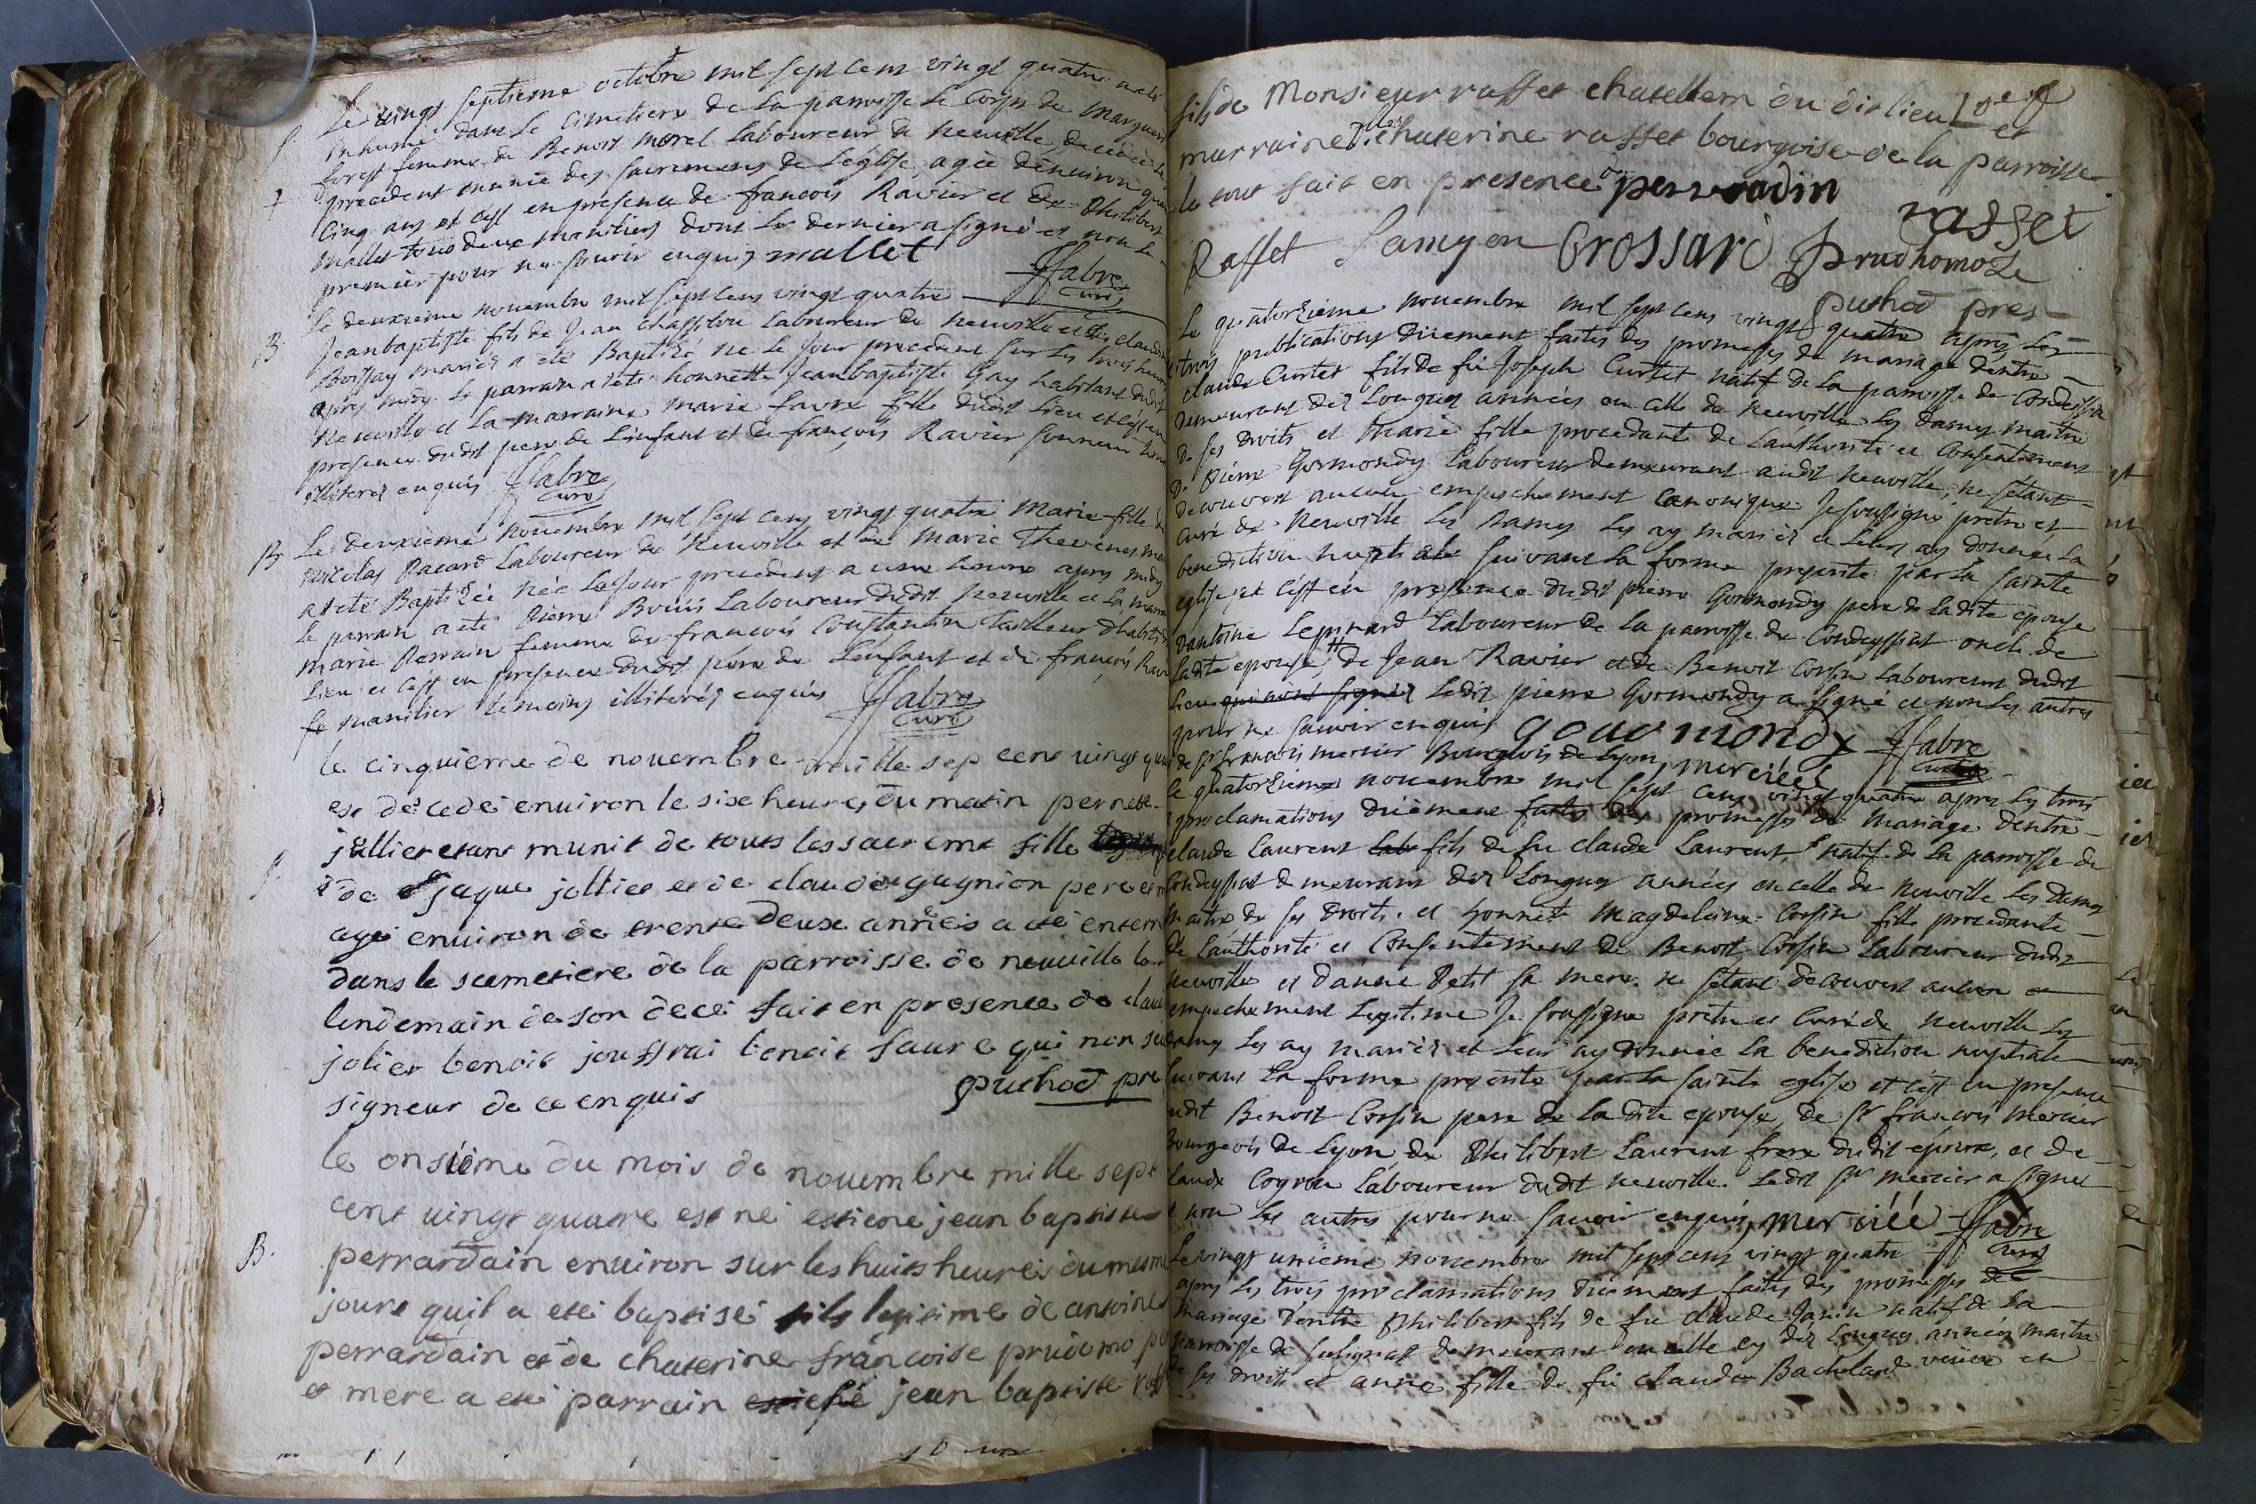 Le vingt septieme octobre mil sept cens vingt quatre a ete
S. inhumé dans le Cimetiere de la parroisse le Corps de Marguerit
forest femme de Benoit morel Laboureur de neuville, decedee le
precedent munie des sacremens de L'eglise, agèe denuiron quar
† Cinq ans et c'est en presence de francois Ravier et de Philibert
Mallet tous deux maniliers dont le dernier a signé et non le
premier pour ne sçavoir enquis mallet JFabre Curé
Le deuxieme nouembre mil sept cens vingt quatre
B. Jean baptiste fils de Jean Chaffitou Laboureur de neuville et de claudin
Boissay mariés a eté Baptizé né le jour precedent sur les trois heures
apres midy le parrain a eté honnette Jean baptiste Gay habitant dudit
Neuville et La marraine marie favre fille dudit Lieu et c'est en
presence dudit pere de L'enfant et de françois Ravier sonneur
illiterés enquis JFabre Curé
B Le deuxieme nouembre mil sept cens vingt quatre Marie fille de
nicolas Racard Laboureur de Neuville et de Marie Thevenet
a eté Baptizèe nèe le jour precedent a une heure apres midy
le parrain a eté Pierre Bouis Laboureur dudit Neuville et La marr
Marie Perrain femme de francois Constantin tailleur d'habits
Lieu et c'est en presence dudit père de L'enfant et de françois Ravi
manilier temoins illiterés enquis JFabre Curé
le cinquieme de nouembre mille sep cent uingt qua
est decedeé enuiron le sixe heures du matin pernette
jollier etant munit de touts les sacremt fille
S. de jaque jollier et de claude gugnion pere et m
agé enuiron de trente deux anneés a eté enterré
dans le scemetiere de la parroisse de neuville le
lendemain de son deceé fait en presence de clau
jolier benoit jouffrai benoit faure qui non seu
signeur de ce enquis puthod pre
le onsieme du mois de nouembre mille sept
cent uingt quatre est né estiene jean baptiste
B. perrardain enuiron sur les huits heures du mesme
jours quil a eté baptisé fils legitime de antoine
perrardain et de chaterine françoise prudomo pe
et mere a eté parrain jean baptiste raff
fils de Monsieur raffet chatellern du dit lieu et
marraine dlle chaterine raffet bourgoise de la parroisse
le tout fait en presence de perraudin
rasset
Raffet Lamyon Crossard Prudhomose
puthod pres
Le quatorzieme nouembre mil sept cens vingt quatre apres les
trois publications düement faites des promesses de mariage d'entre
claude Curtet fils de fü Joseph Curtet natif de la parroisse de Condeissia
demeurant dez Longues années en celle de neuville les dames maitre
de ses droits et Marie fille procedante de L'authorité et Consentement
de Pierre Gormondy Laboureur demeurant audit neuville, ne s'etant
decouvert aucun empeschement Canonique Je soussigné prêtre et
curé de Neuville les Dames les ay mariés et leur ay donnee la
benediction nuptiale suivant la forme prescrite par la sainte
eglise et c'est en presence dudit pierre Gormondy pere de ladite epouse
d'antoine Leonard Laboureur de la parroisse de Condeyssiat oncle de
ladite epouse, # de Jean Ravier et de Benoit Corsin Laboureurs dudit
Lieu qui ont signés Ledit pierre Gormondy a signé et non les autres
pour ne sçavoir enquis gouormondy JFabre Curé
# de sr francois mercier Bourgeois de Lyon, merciéé
Le quatorzieme nouembre mil sept cens vingt quatre apres les trois
proclamations düement faites des promesses de Mariage d'entre
claude Laurent fils de fu claude Laurent, natif de la parroisse de
Condeyssiat demeurant dez Longues années en celle de neuville les Dames
maitre de ses droits. et honnete Magdeleine Corsin fille procedante
de L'authorité et Consentement de Benoit Corsin Laboureur dudit
neuville et d'anne Petit sa mere. ne s'etant decouvert aucun
empechement Legitime Je soussigné prêtre et Curé de Neuville les
dames Les ay mariés et leur ay donnée la benediction nuptiale
suivant la forme prescrite par la sainte eglise et c'est en presence
udit Benoit Corsin pere de la dite epouse, de sr francois mercier
Bourgeois de Lyon, de Philibert Laurent frere dudit epoux, et de
claude Coyron Laboureur dudit neuville. Ledit sr mercier a signé
et non les autres pour ne sçavoir enquis, merciéé JFabre Curé
Le vingt unieme nouembre mil sept cens vingt quatre
apres les trois proclamations düement faites des promesses de
mariage d'entre Philibert fils de fu claude Janin natif de la
parroisse de sulignat demeurant en celle cy dez longues années maitre
de ses droits et anne fille de fü claude Bachelard veüve en